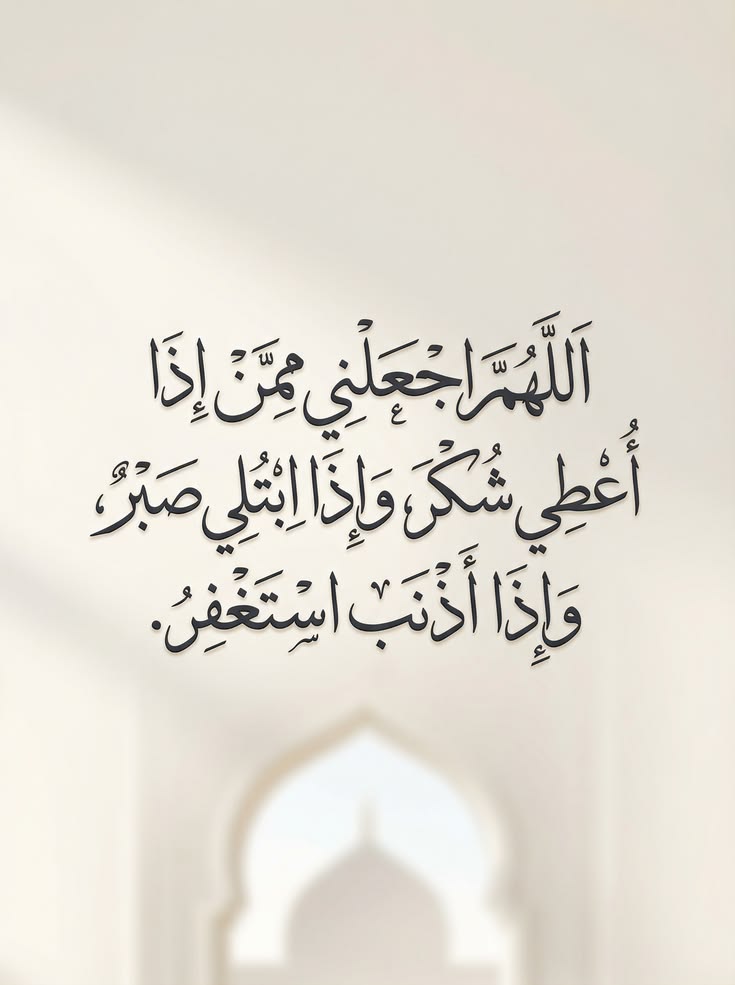 اَللَّهُمَّ اجْعَلْنِي مِمَّنْ إِذَا
أُعْطِي شُكْرَ وَإِذَا اِبْتُلِي صَبْرٌ
وَإِذَا أَذْنَب اسْتَغْفِرُ.